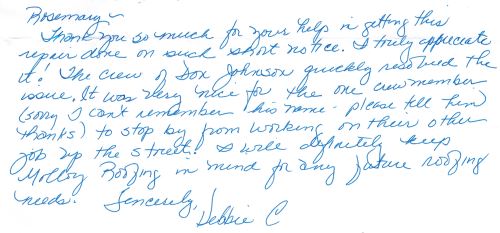 Rosemary~
Thank you so much for your help in getting this
repair done on such short notice. I truly appreciate
it! The crew of Don Johnson quickly resolved the
issue. It was very nice for the one crew member
(sorry I can't remember his name - please tell him
thanks) to stop by from working on their other
job up the street! I will definitely keep
Molloy Roofing in mind for any future roofing
needs. Sincerely,
Debbie C